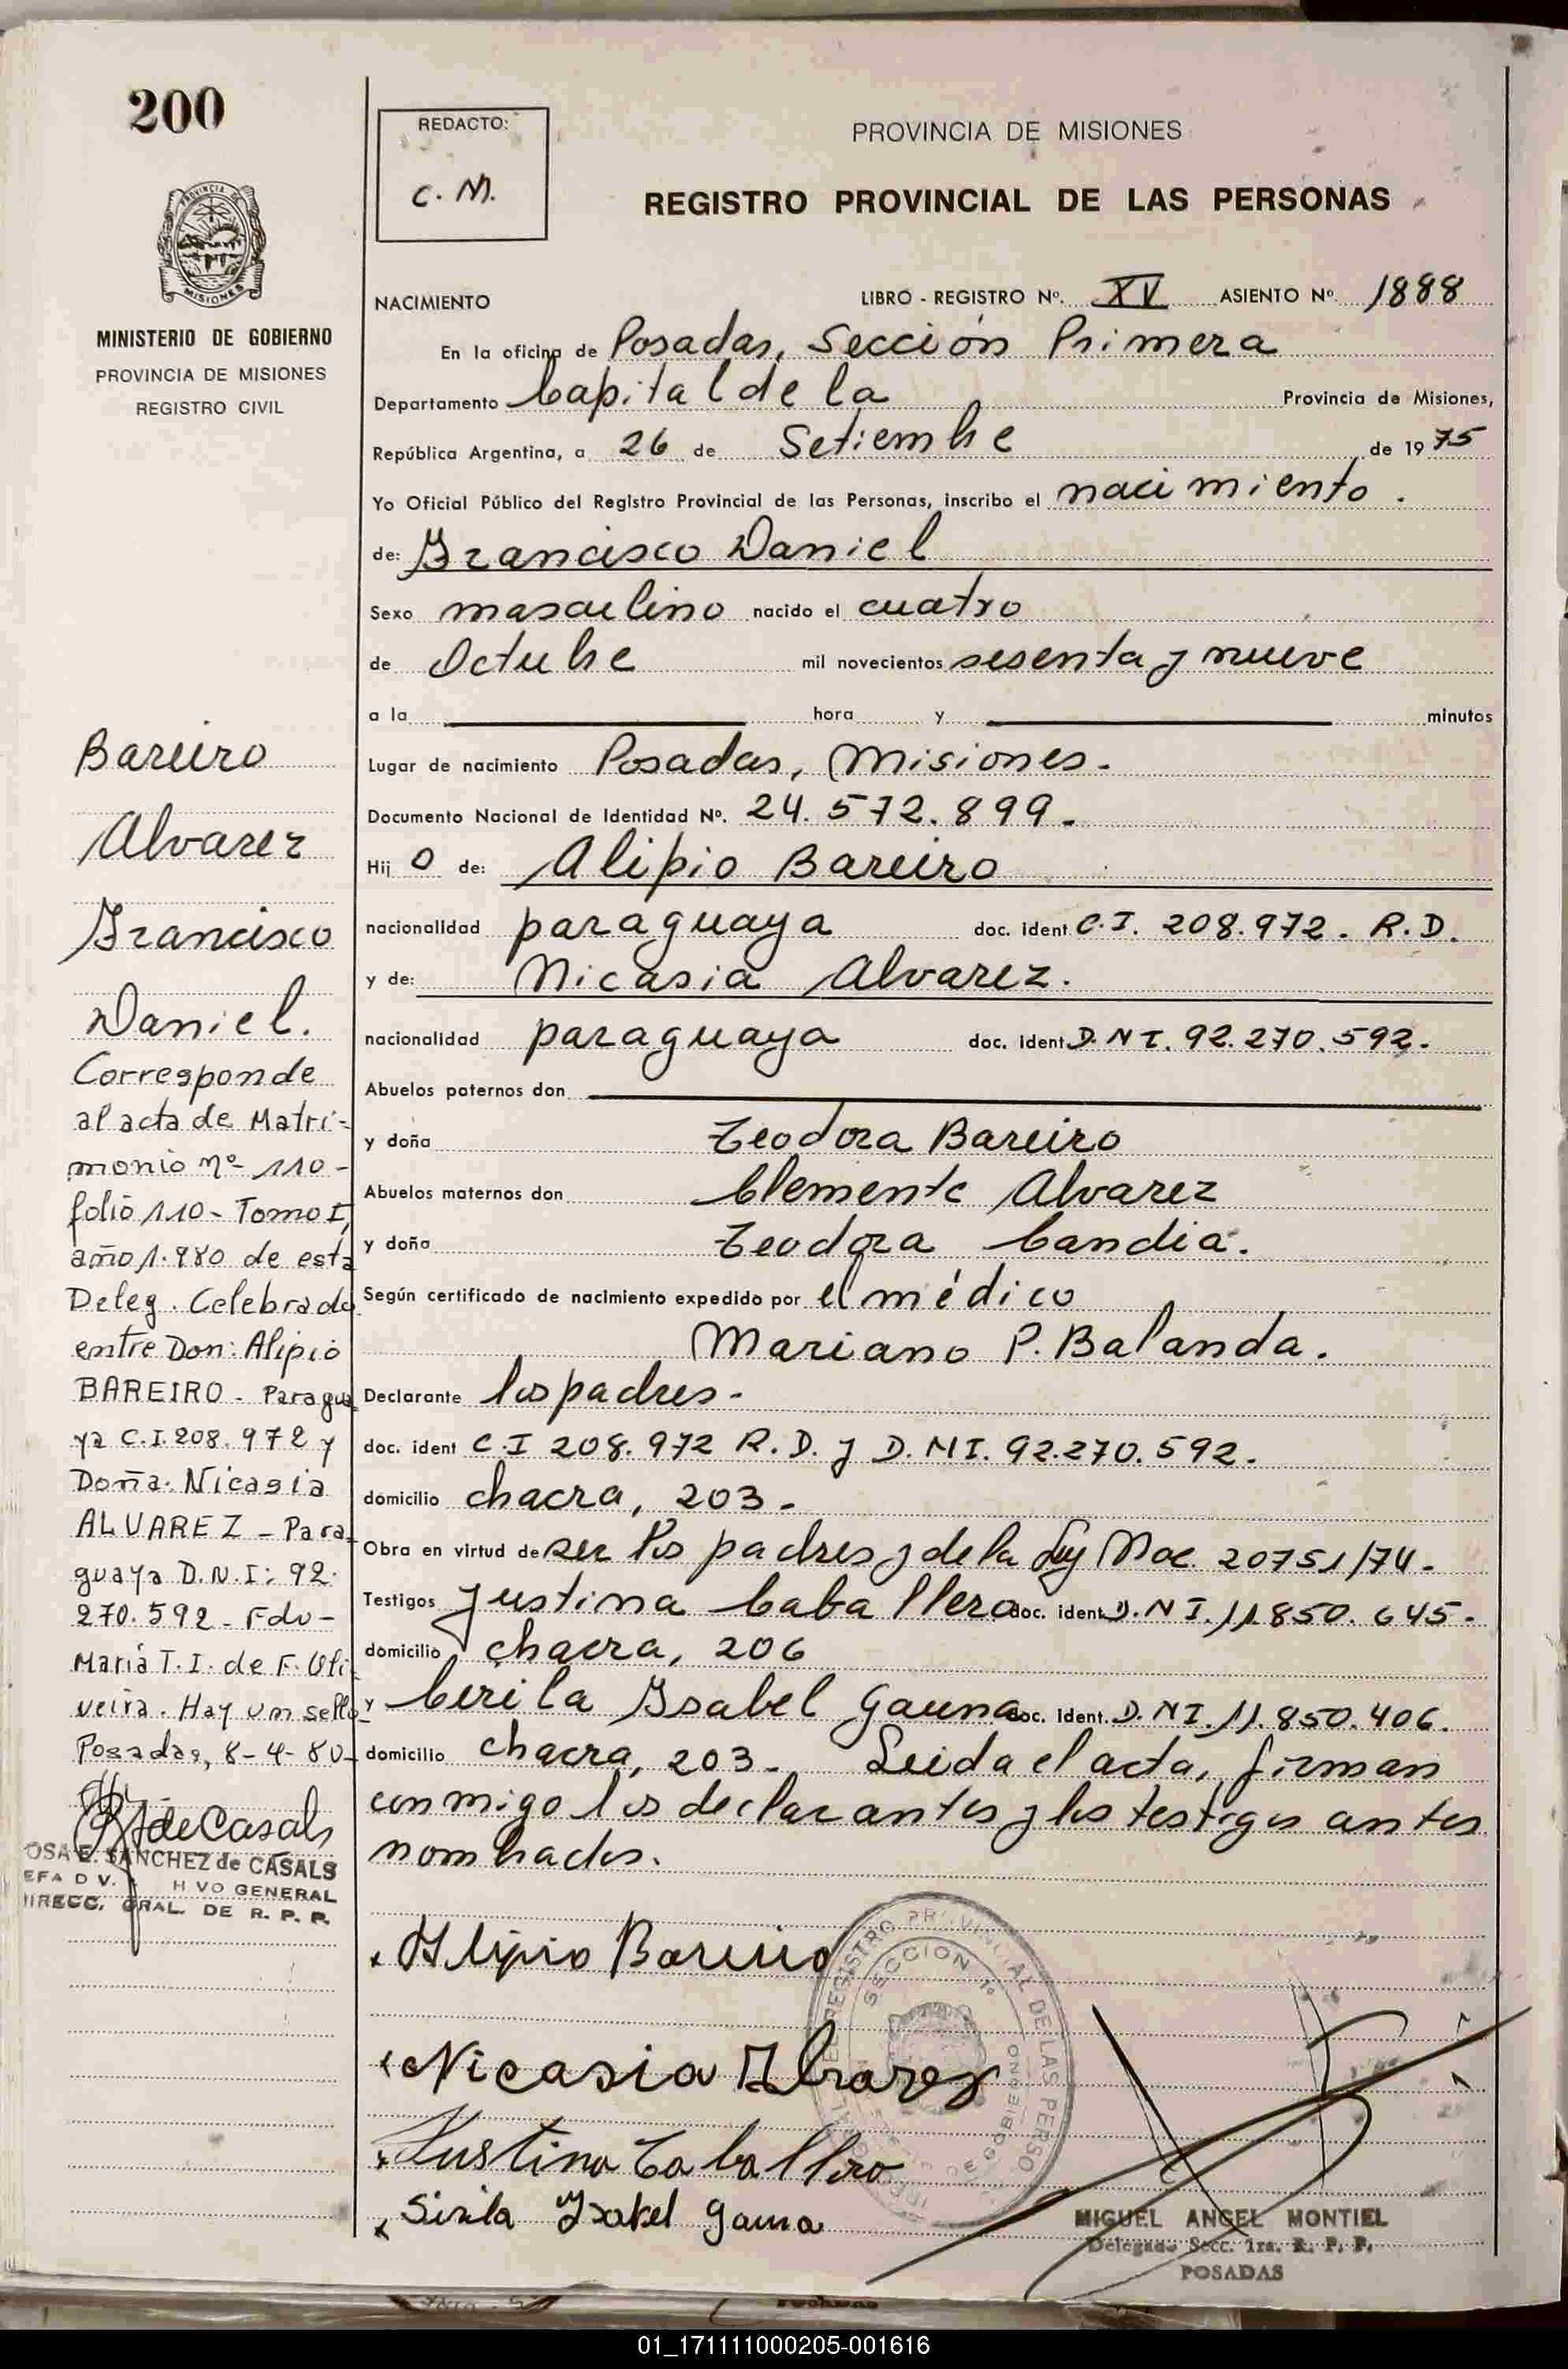 200
MINISTERIO DE GOBIERNO
PROVINCIA DE MISIONES
REGISTRO CIVIL
REDACTO:
C. M.
PROVINCIA DE MISIONES
REGISTRO PROVINCIAL DE LAS PERSONAS
NACIMIENTO LIBRO - REGISTRO Nº. XV ASIENTO Nº. 1888
En la oficina de Posadas, Sección Primera
Departamento Capital de la Provincia de Misiones,
República Argentina, a 26 de Setiembre de 1975
Yo Oficial Público del Registro Provincial de las Personas, inscribo el nacimiento.
de: Francisco Daniel
Sexo masculino nacido el cuatro
de Octubre mil novecientos sesenta y nueve
a la hora y minutos
Lugar de nacimiento Posadas, Misiones.
Documento Nacional de Identidad Nº. 24.572.899.
Hij o de: Alipio Bareiro
nacionalidad paraguaya doc. ident C.I. 208.972. R.D.
y de: Nicasia Alvarez.
nacionalidad paraguaya doc. ident D.NI. 92.270.592.
Abuelos paternos don
y doña Teodora Bareiro
Abuelos maternos don Clemente Alvarez
y doña Teodora Candia.
Según certificado de nacimiento expedido por el médico
Mariano P. Balanda.
Declarante los padres.
doc. ident C.I 208.972 R.D. y D.NI. 92.270.592.
domicilio chacra, 203.
Obra en virtud de ser los padres y de la Ley Nac. 20751/74.
Testigos Justina Caballero doc. ident. D.NI. 11.850.645.
domicilio chacra, 206
y Cirila Isabel Gauna doc. ident. D.NI. 11.850.406.
domicilio chacra, 203. Leida el acta, firman
conmigo los declarantes y los testigos antes
nombrados.
Alipio Bareiro
Nicasia Alvarez
Justina Caballero
Sirila Ysabel Gauna
REGISTRO PROVINCIAL DE LAS PERSO
SECCION 1º
DE GOBIERNO
MIGUEL ANGEL MONTIEL
Delegado Secc. 1ra. R. P. P.
POSADAS
Bareiro
Alvarez
Francisco
Daniel.
Corresponde
al acta de Matri-
monio nº 110-
folio 110 - Tomo I,
año 1.980 de esta
Deleg. Celebrado
entre Don: Alipio
BAREIRO - Paragua
ya C.I. 208.972 y
Doña: Nicasia
ALVAREZ - Para
guaya D.N.I: 92.
270.592 - Fdo -
Maria T.I. de F. Oli
veira. Hay un sello
Posadas, 8-4-80
de Casals
OSA E. SANCHEZ de CASALS
EFA D V. H VO GENERAL
DIRECC. GRAL. DE R. P. P.
MISIONES
01_171111000205-001616